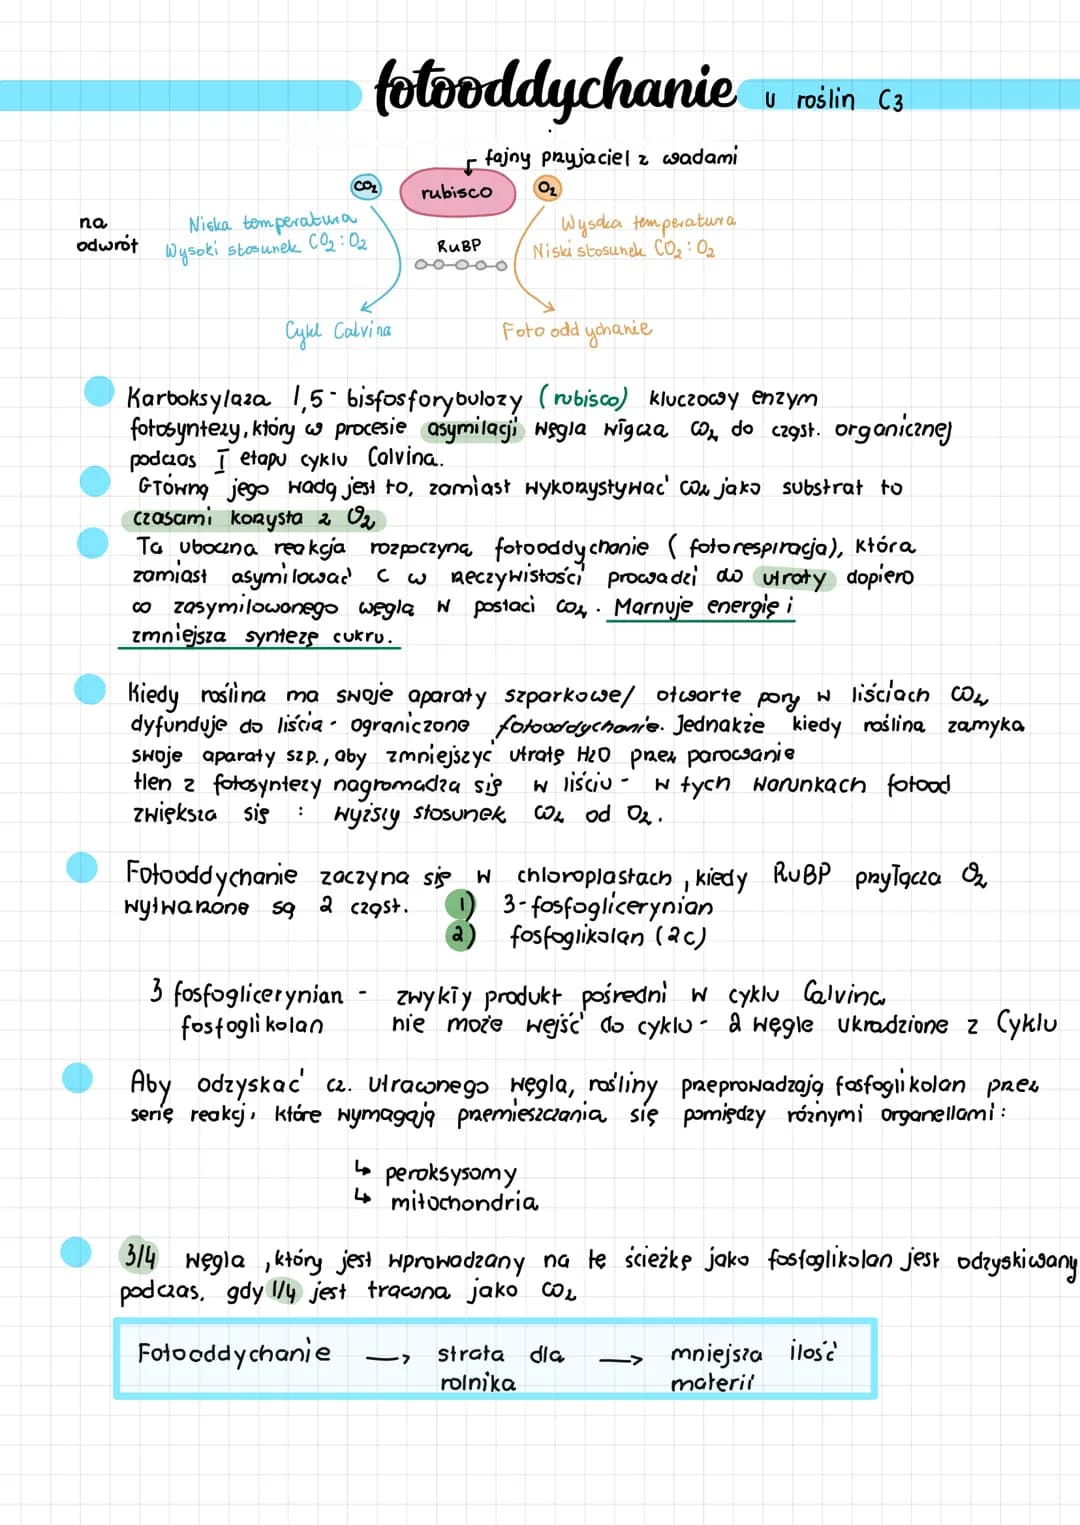 fotooddychanie u roślin C3
fajny przyjaciel z wadami
CO2 rubisco O2
na odwrót
Niska temperatura
Wysoki stosunek CO2:O2
RuBP
Wysoka temperatura
Niski stosunek CO2:O2
Cykl Calvina
Fotooddychanie
Karboksylaza 1,5-bisfosforybulozy (rubisco) kluczowy enzym
fotosyntezy, który w procesie asymilacji węgla włącza CO2 do cząst. organicznej
podczas I etapu cyklu Calvina.
Główną jego wadą jest to, zamiast wykorzystywać CO2 jako substrat to
czasami korzysta z O2
Ta uboczna reakcja rozpoczyna fotooddychanie (fotorespiracja), która
zamiast asymilować C w rzeczywistości prowadzi do utraty dopiero
co zasymilowanego węgla w postaci CO2. Marnuje energię i
zmniejsza syntezę cukru.
Kiedy roślina ma swoje aparaty szparkowe/ otwarte pory w liściach CO2
dyfunduje do liścia - ograniczone fotooddychanie. Jednakże kiedy roślina zamyka
swoje aparaty szp., aby zmniejszyć utratę H2O przez parowanie
tlen z fotosyntezy nagromadza się w liściu - w tych warunkach fotood
zwiększa się : wyższy stosunek CO2 od O2.
Fotooddychanie zaczyna się w chloroplastach, kiedy RuBP przyłącza O2
wytwarzone są 2 cząst. 1) 3-fosfoglicerynian
2) fosfoglikolan (2c)
3 fosfoglicerynian - zwykły produkt pośredni w cyklu Calvina
fosfoglikolan nie może wejść do cyklu - 2 węgle ukradzione z Cyklu
Aby odzyskać cz. utraconego węgla, rośliny przeprowadzają fosfoglikolan przez
serię reakcji, które wymagają przemieszczania się pomiędzy różnymi organellami:
↳ peroksysomy
↳ mitochondria
3/4 węgla, który jest wprowadzany na tę ścieżkę jako fosfoglikolan jest odzyskiwany
podczas, gdy 1/4 jest tracona jako CO2
Fotooddychanie → strata dla → mniejsza ilość
rolnika materii